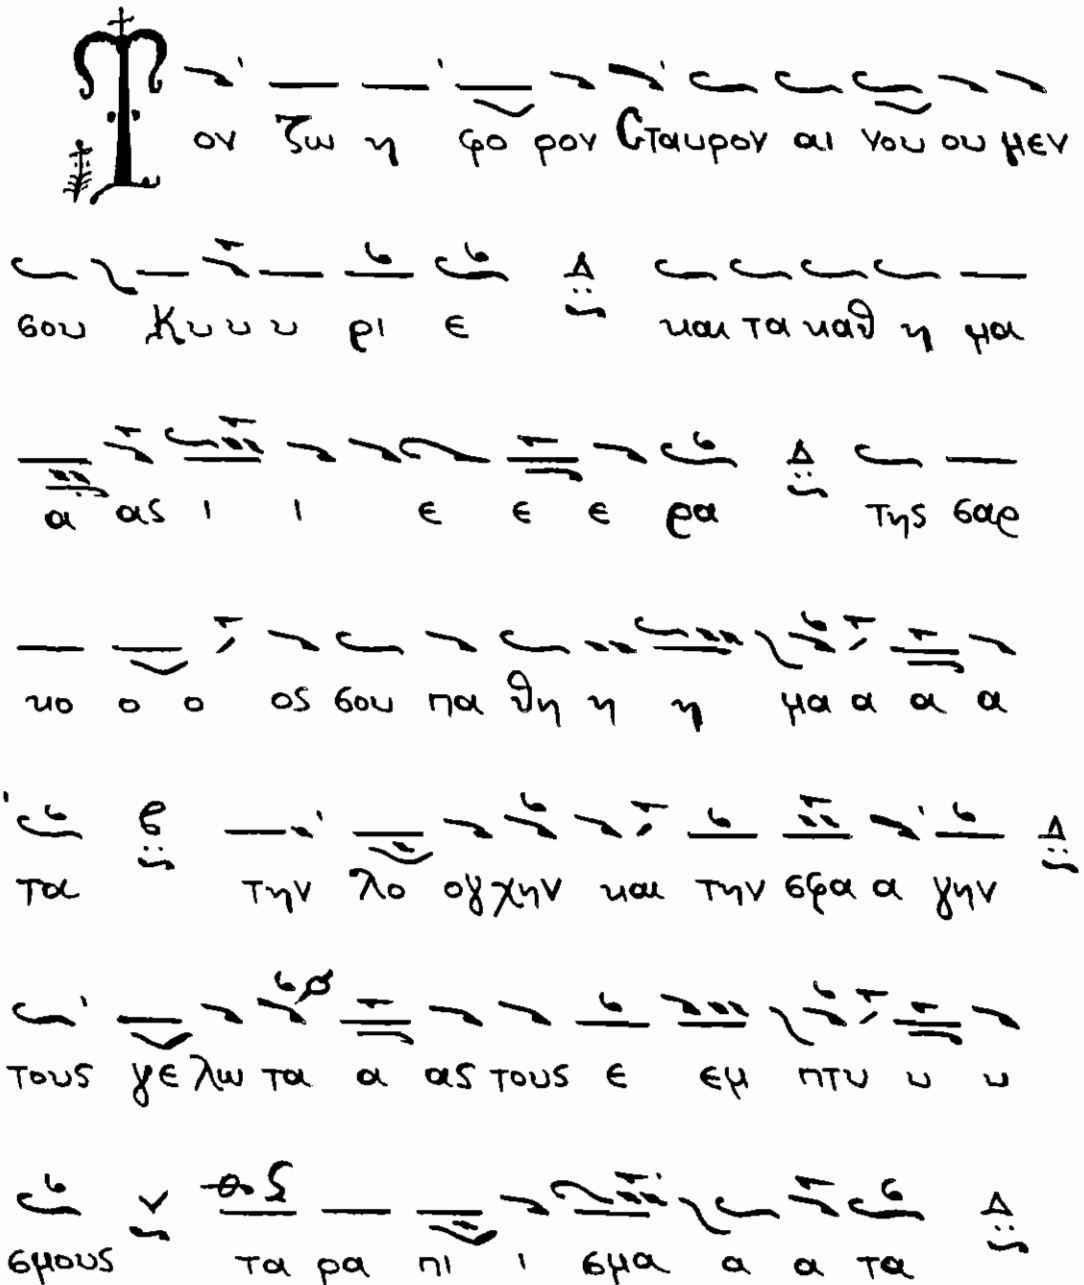 Τον ζω η φο ρον Σταυρον αι νου ου μεν
σου Κυ υ υ ρι ε Δ και τα καθ η μα
α ας ι ι ε ε ε ρα Δ της σαρ
κο ο ο ος σου πα θη η η μα α α α
τα την λο ογ χην και την σφα α γην Δ
τους γε λω τα α ας τους ε εμ πτυ υ υ
σμους τα ρα πι ι σμα α α τα Δ